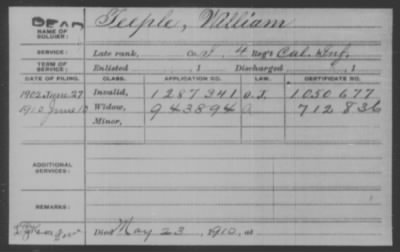 DEAD Teeple, William
NAME OF SOLDIER:
SERVICE: Late rank, Co. I, 4 Reg't Cal. Inf.
TERM OF SERVICE: Enlisted , 1 Discharged , 1
DATE OF FILING. CLASS. APPLICATION NO. LAW. CERTIFICATE NO.
1902 June 27 Invalid, 1287341 1050677
1910 June 10 Widow, 943894 712836
Minor,
ADDITIONAL SERVICES:
REMARKS:
Died May 23, 1910, at